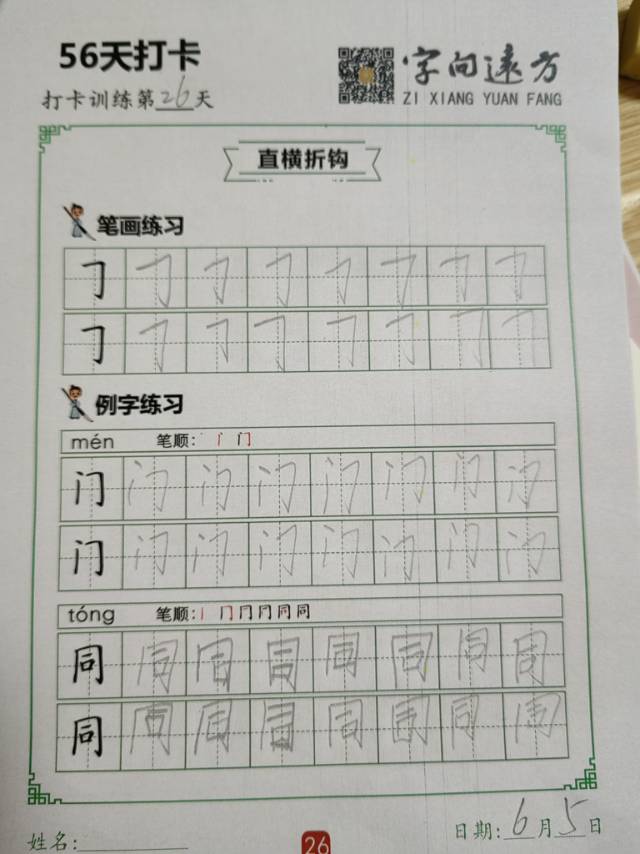 56天打卡
打卡训练第26天
字向远方
ZI XIANG YUAN FANG
直横折钩
笔画练习
㇆ ㇆ ㇆ ㇆ ㇆ ㇆ ㇆ ㇆
㇆ ㇆ ㇆ ㇆ ㇆ ㇆ ㇆ ㇆
例字练习
mén 笔顺:
门 门 门 门 门 门 门 门
门 门 门 门 门 门 门 门
tóng 笔顺:
同 同 同 同 同 同 同 同
同 同 同 同 同 同 同 同
姓名:
26
日期: 6月5日